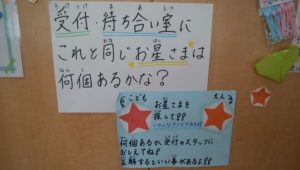 受付・待ち合い室に
これと同じお星さまは
何個あるかな？
こども
大人
お星さまを
探して!!
いろんなサイズがあるよ!
何個あるか、受付のスタッフに
おしえてね♪
正解するといい事があるよ!!